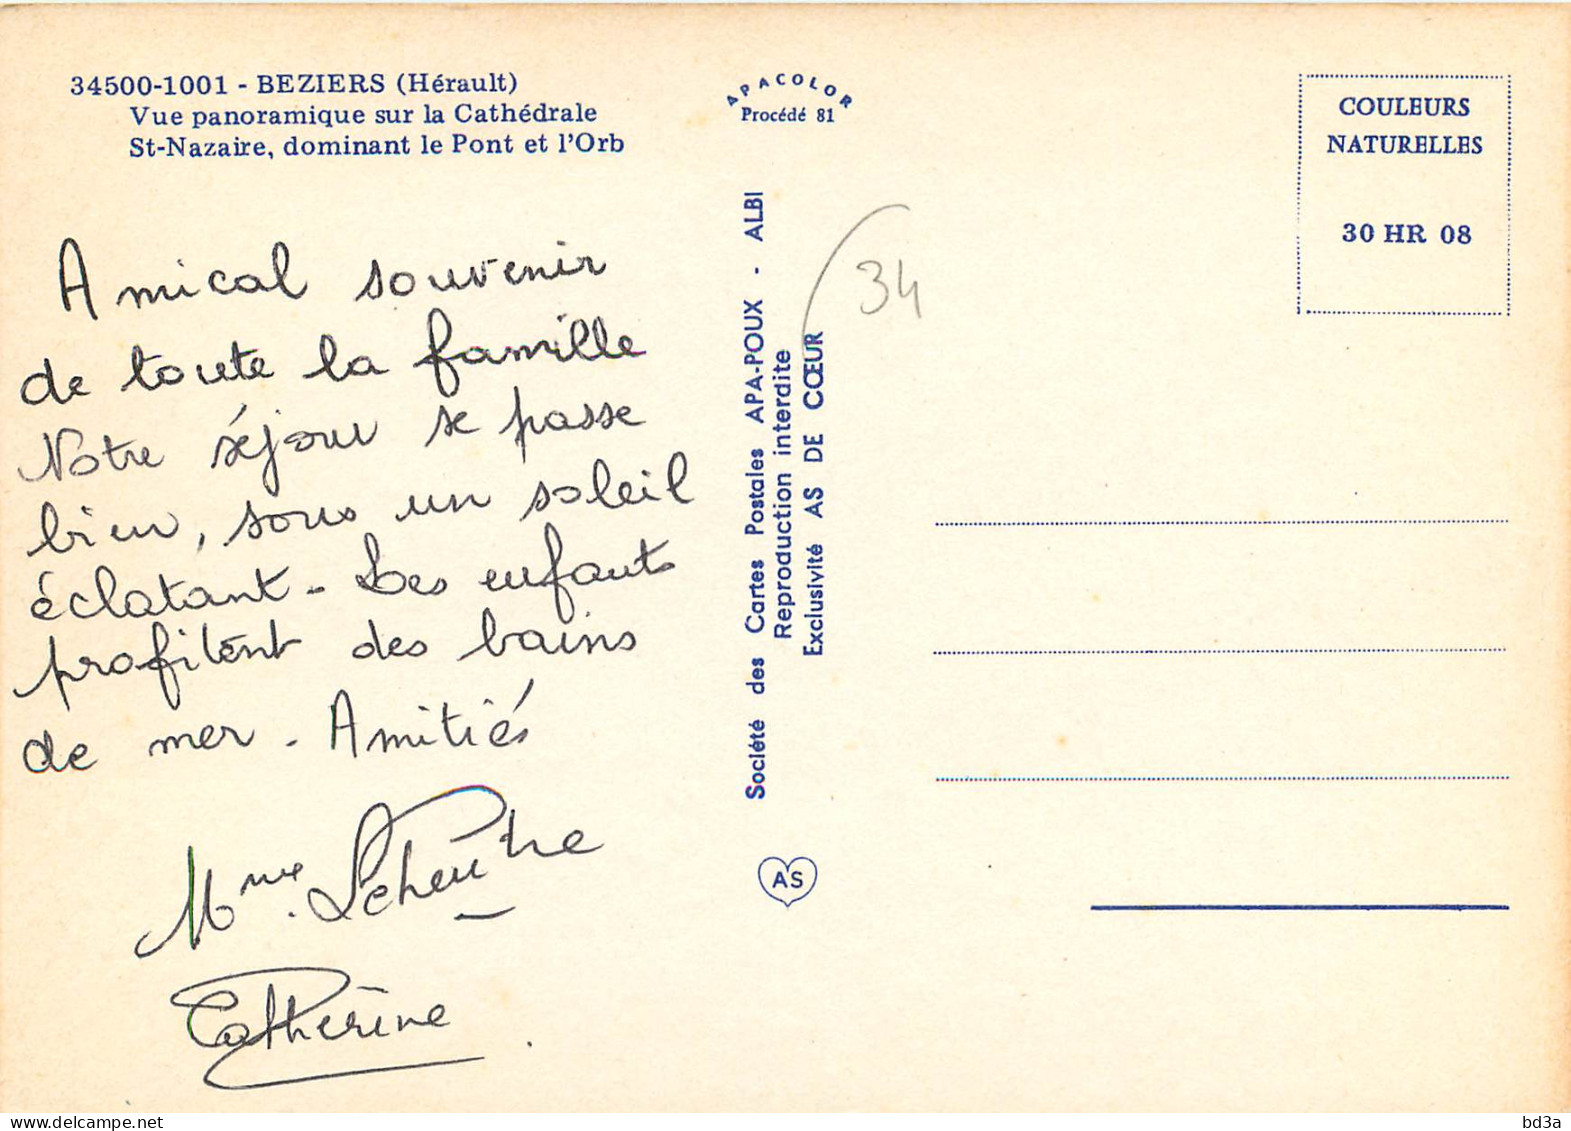 34500-1001 - BEZIERS (Hérault)
Vue panoramique sur la Cathédrale
St-Nazaire, dominant le Pont et l'Orb
APACOLOR
Procédé 81
COULEURS
NATURELLES
30 HR 08
34
Amical souvenir
de toute la famille
Notre séjour se passe
bien, sous un soleil
éclatant - Les enfants
profitent des bains
de mer - Amitiés
Mme
Catherine
Société des Cartes Postales APA-POUX - ALBI
Reproduction interdite
Exclusivité AS DE CŒUR
AS
delcampe.net
bd3a